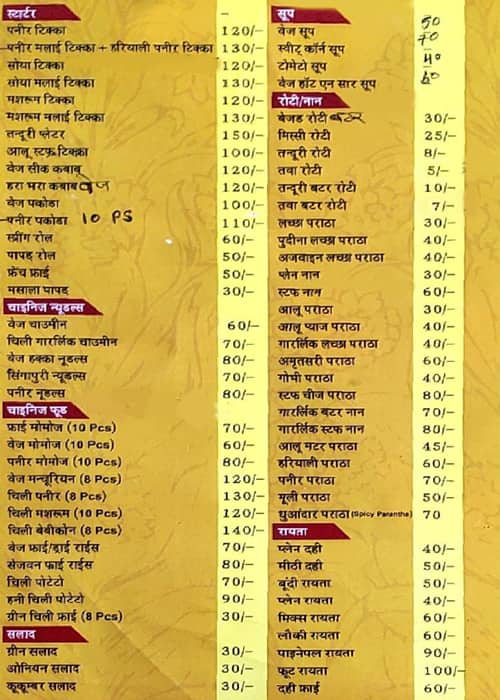 स्टार्टर -
पनीर टिक्का 120/-
पनीर मलाई टिक्का + हरियाली पनीर टिक्का 130/-
सोया टिक्का 120/-
सोया मलाई टिक्का 130/-
मशरूम टिक्का 120/-
मशरूम मलाई टिक्का 130/-
तन्दूरी प्लेटर 150/-
आलू स्टफ्ड टिक्का 100/-
वेज सीक कबाब 120/-
हरा भरा कबाब वेज 120/-
वेज पकोडा 100/-
पनीर पकोडा 10 PS 110/-
स्प्रींग रोल 60/-
पापड़ रोल 50/-
फ्रेंच फ्राई 50/-
मसाला पापड़ 30/-
चाइनिज न्यूडल्स
वेज चाउमीन 60/-
चिली गारलिक चाउमीन 70/-
वेज हक्का नूडल्स 80/-
सिंगापुरी न्यूडल्स 70/-
पनीर नूडल्स 80/-
चाइनिज फूड
फ्राई मोमोज (10 Pcs) 70/-
वेज मोमोज (10 Pcs) 60/-
पनीर मोमोज (10 Pcs) 80/-
वेज मन्चूरियन (8 Pcs) 120/-
चिली पनीर (8 Pcs) 130/-
चिली मशरूम (10 Pcs) 120/-
चिली बेबीकोन (8 Pcs) 140/-
वेज फ्राई/ड्राई राईस 70/-
सेजवन फ्राई राईस 80/-
चिली पोटेटो 70/-
हनी चिली पोटेटो 90/-
ग्रीन चिली फ्राई (8 Pcs) 30/-
सलाद
ग्रीन सलाद 30/-
ओनियन सलाद 30/-
कूकूम्बर सलाद 30/-
सूप
वेज सूप 50
स्वीट कॉर्न सूप 70
टोमेटो सूप 40
वेज हॉट एन सार सूप 60
रोटी/नान
बेजड रोटी बटर 30/-
मिस्सी रोटी 25/-
तन्दूरी रोटी 8/-
तवा रोटी 5/-
तन्दूरी बटर रोटी 10/-
तवा बटर रोटी 7/-
लच्छा पराठा 30/-
पुदीना लच्छा पराठा 40/-
अजवाइन लच्छा पराठा 40/-
प्लेन नान 30/-
स्टफ नान 60/-
आलू पराठा 30/-
आलू प्याज पराठा 40/-
गारलिक लच्छा पराठा 40/-
अमृतसरी पराठा 60/-
गोभी पराठा 40/-
स्टफ चीज पराठा 80/-
गारर्लिक बटर नान 70/-
गारर्लिक स्टफ नान 80/-
आलू मटर पराठा 45/-
हरियाली पराठा 60/-
पनीर पराठा 70/-
मूली पराठा 50/-
धुआंदार पराठा (Spicy Parantha) 70
रायता
प्लेन दही 40/-
मीठी दही 50/-
बूंदी रायता 50/-
प्लेन रायता 40/-
मिक्स रायता 60/-
लौकी रायता 60/-
पाइनेपल रायता 90/-
फ्रूट रायता 100/-
दही फ्राई 60/-